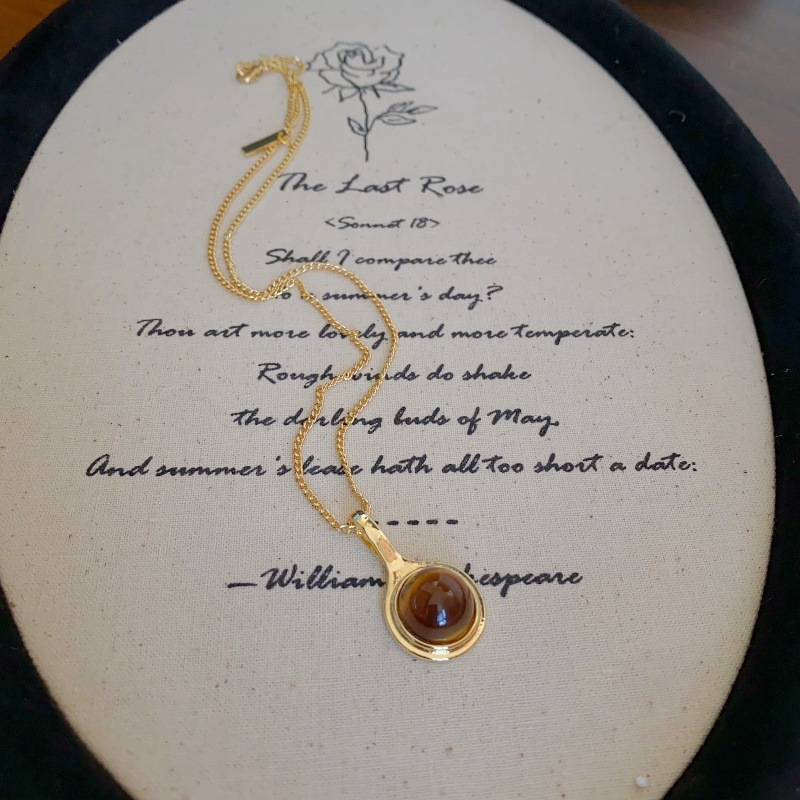 The Last Rose
<Sonnet 18>
Shall I compare thee
to a summer's day?
Thou art more lovely and more temperate:
Rough winds do shake
the darling buds of May,
And summer's lease hath all too short a date:
-----
—William Shakespeare